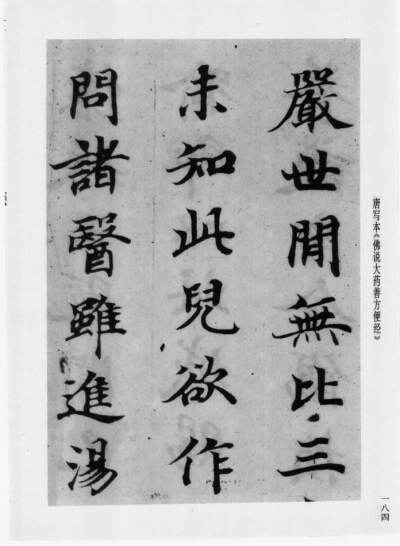 嚴世間無比三
未知此兒欲作
問諸醫雖進湯
唐写本《佛说大药善方便经》
一八四